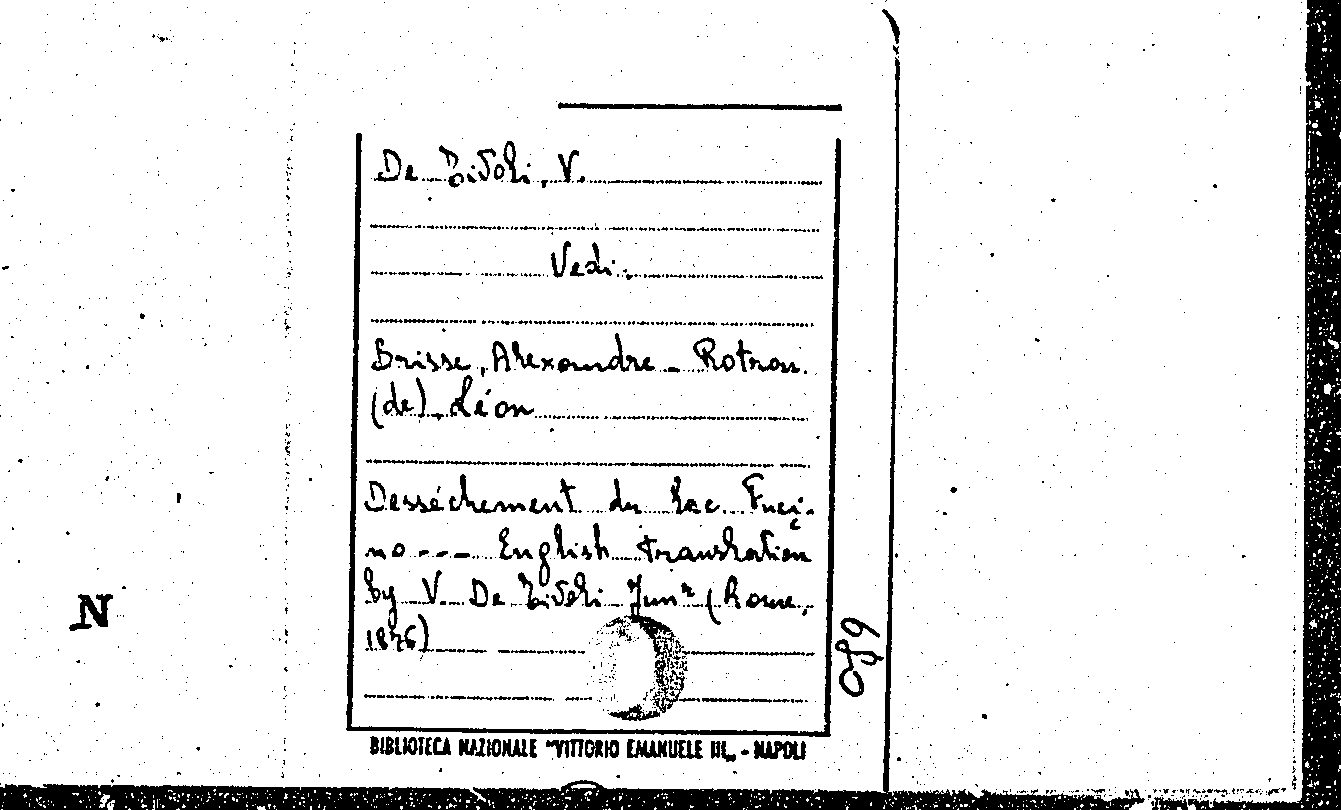 De Tivoli, V.
Vedi.
Brisse, Alexandre - Rotrou
(de), Léon
Desséchement du Lac Fuci-
no --- English translation
by V. De Tivoli Junr (Rome,
1876)
N
680
BIBLIOTECA NAZIONALE "VITTORIO EMANUELE III„ - NAPOLI